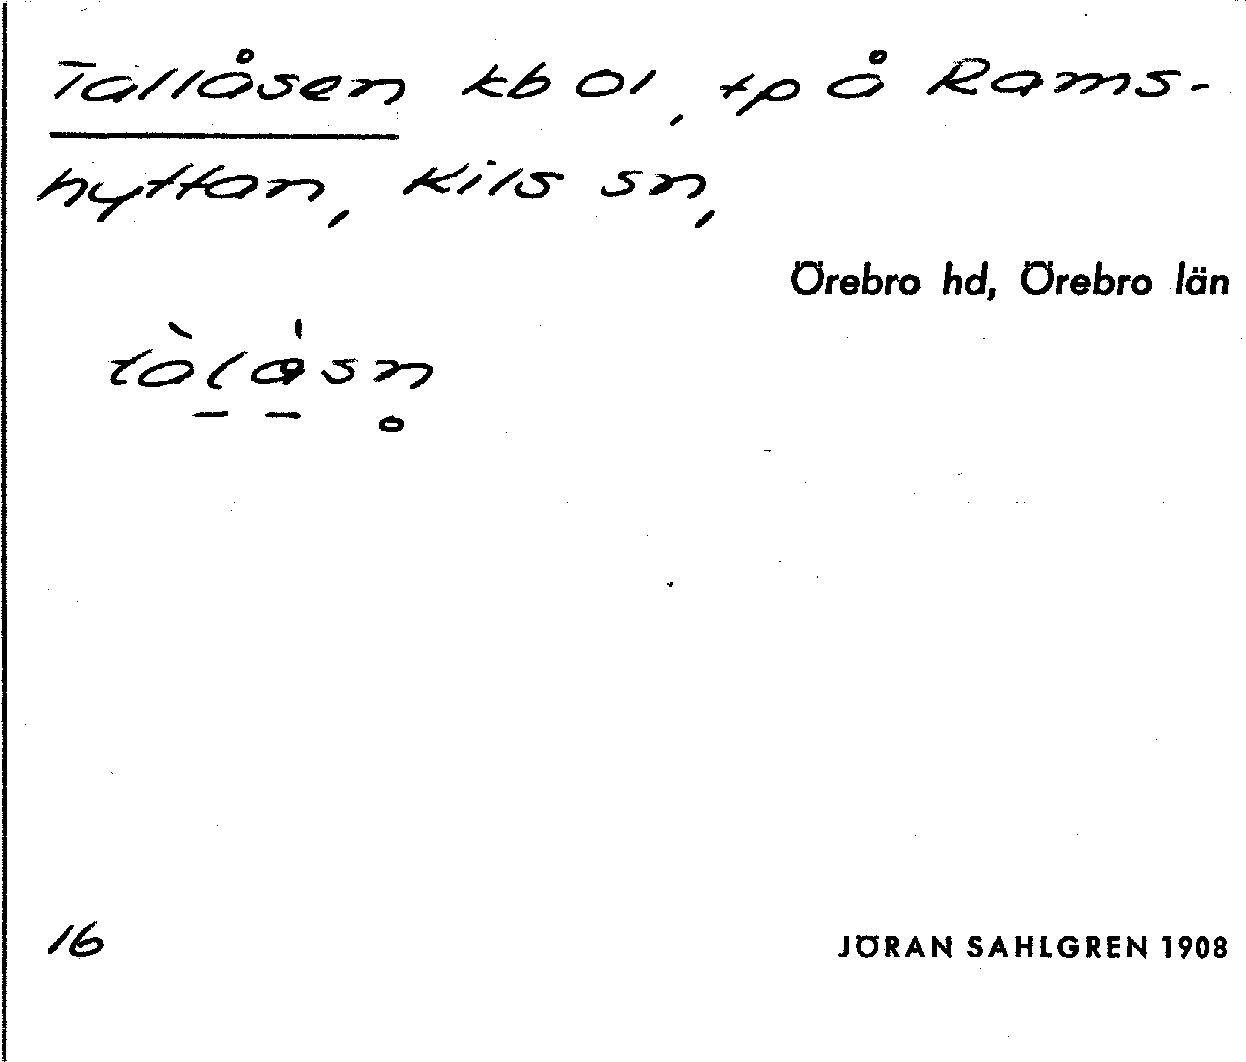 Tallåsen kb ol, tp å Rams-
hyttan, Kils sn,
Örebro hd, Örebro län
16
JÖRAN SAHLGREN 1908